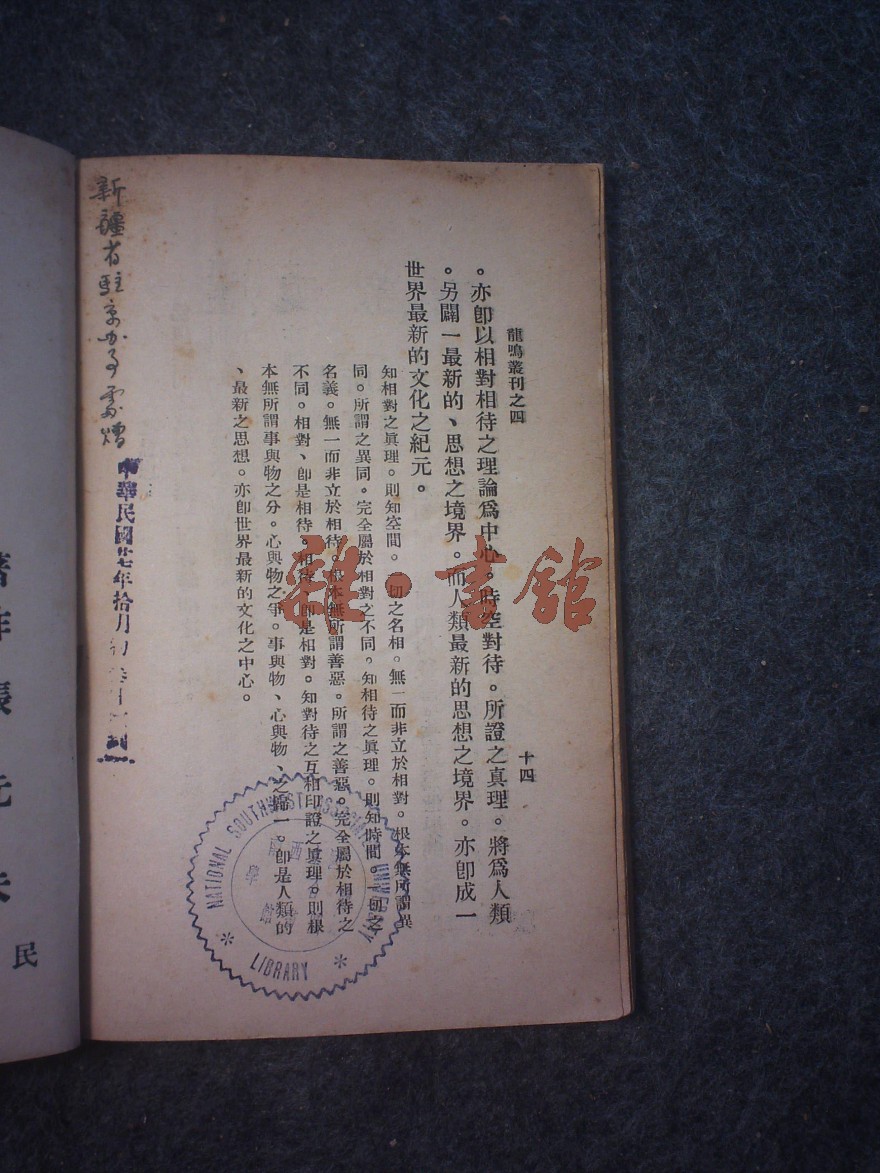 龍鳴叢刊之四
十四
。亦卽以相對相待之理論爲中心。時空對待。所證之真理。將爲人類
。另闢一最新的、思想之境界。而人類最新的思想之境界。亦卽成一
世界最新的文化之紀元。
知相對之眞理。則知空間。一切之名相。無一而非立於相對。根本無所謂異
同。所謂之異同。完全屬於相對之不同。知相待之眞理。則知時間。一切之
名義。無一而非立於相待。根本無所謂善惡。所謂之善惡。完全屬於相待之
不同。相對、卽是相待。相待、卽是相對。知對待之互相印證之眞理。則根
本無所謂事與物之分。心與物之爭。事與物、心與物、之歸一。卽是人類的
、最新之思想。亦卽世界最新的文化之中心。
新疆省駐京办事處贈
中華民國廿七年拾月初
到
NATIONAL SOUTHWEST ASSOCIATED UNIVERSITY
LIBRARY
雜·書館
民